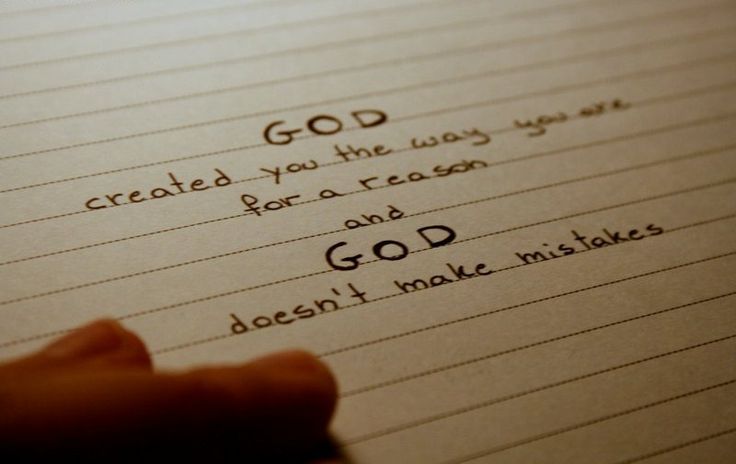 GOD
created you the way you are
for a reason
and
GOD
doesn't make mistakes